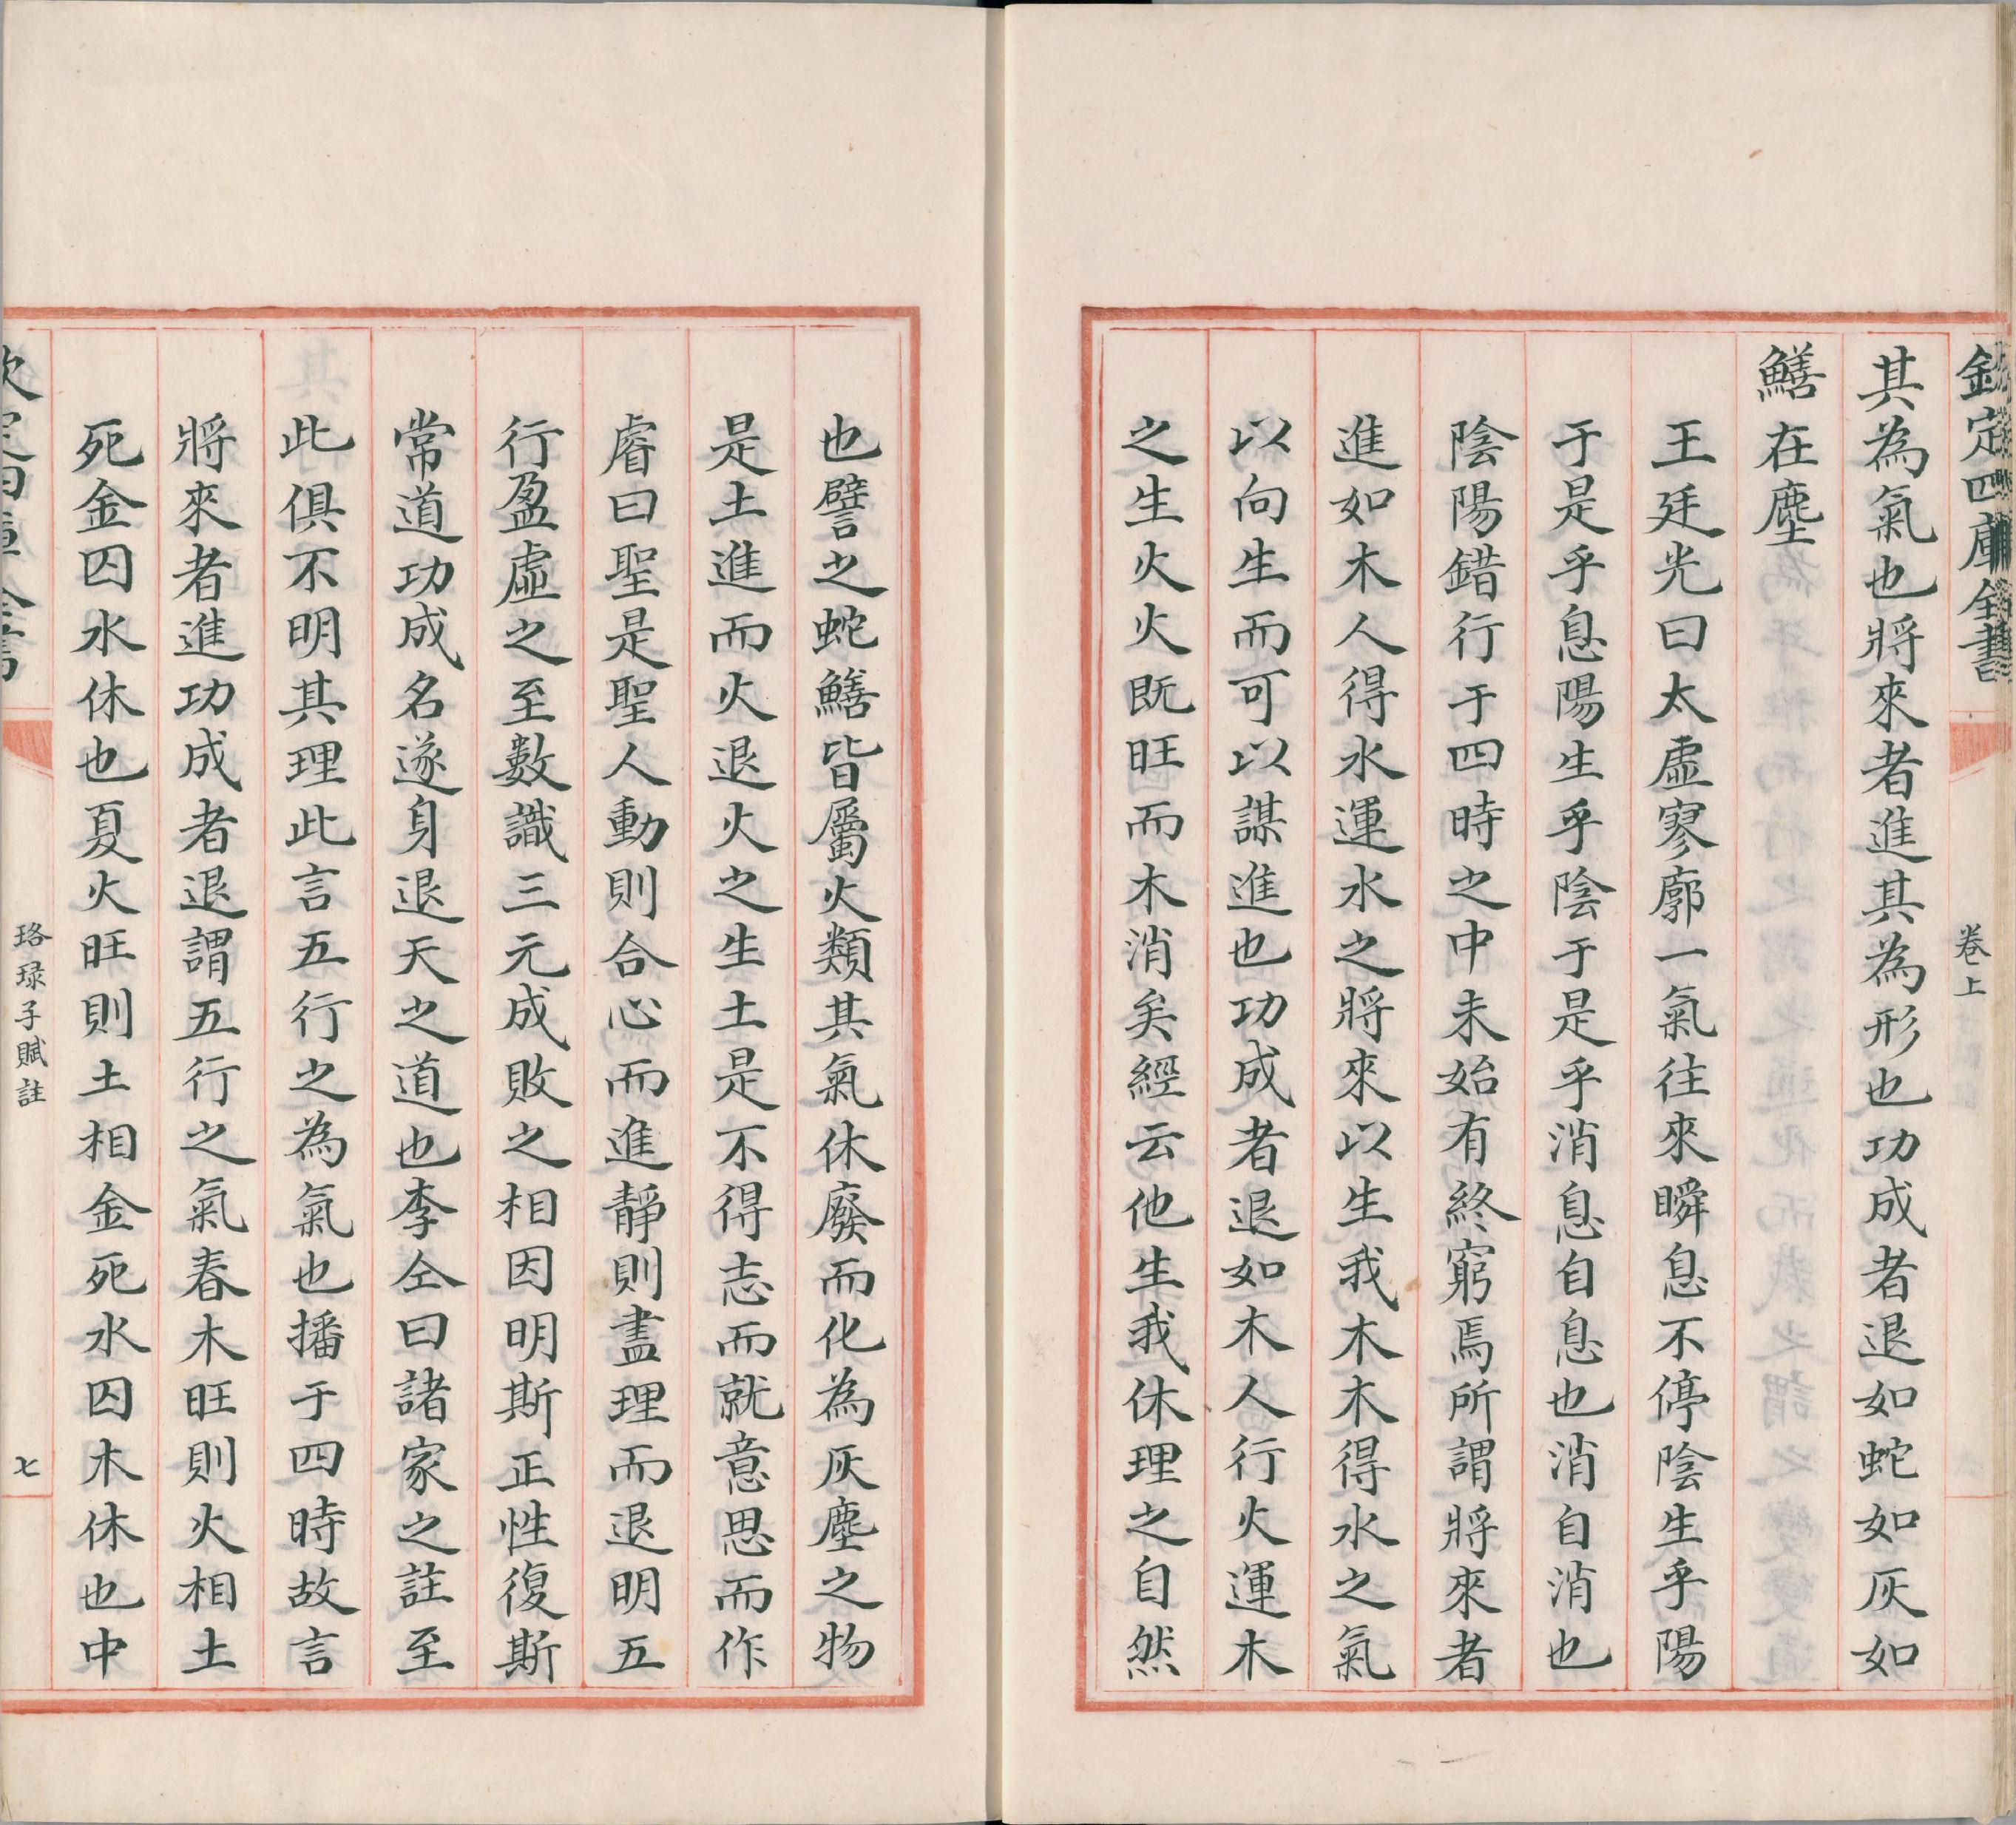 欽定四庫全書
卷上
其為氣也將來者進其為形也功成者退如蛇如灰如
鱔在塵
王廷光曰太虛寥廓一氣往來瞬息不停陰生乎陽
于是乎息陽生乎陰于是乎消息自息也消自消也
陰陽錯行于四時之中未始有終窮焉所謂將來者
進如木人得水運水之將來以生我木木得水之氣
以向生而可以謀進也功成者退如木人行火運木
之生火火既旺而木消矣經云他生我休理之自然
也譬之蛇鱔皆屬火類其氣休廢而化為灰塵之物
是土進而火退火之生土是不得志而就意思而作
睿曰聖是聖人動則合心而進靜則盡理而退明五
行盈虛之至數識三元成敗之相因明斯正性復斯
常道功成名遂身退天之道也李仝曰諸家之註至
此俱不明其理此言五行之為氣也播于四時故言
將來者進功成者退謂五行之氣春木旺則火相土
死金囚水休也夏火旺則土相金死水囚木休也中
欽定四庫全書
珞琭子賦註
七